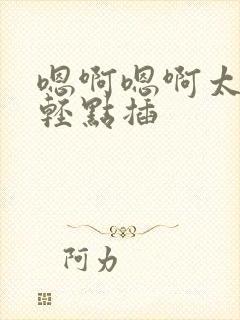 嗯啊嗯啊太
輕點插
阿力